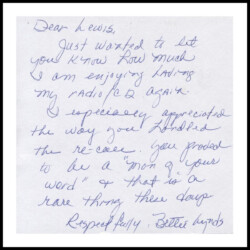 Dear Lewis,
Just wanted to let
you know how much
I am enjoying having
my radio/CD again.
I especially appreciated
the way you handled
the re-case. You proved
to be a "man of your
word" & that is a
rare thing these days
Respectfully, Bettie